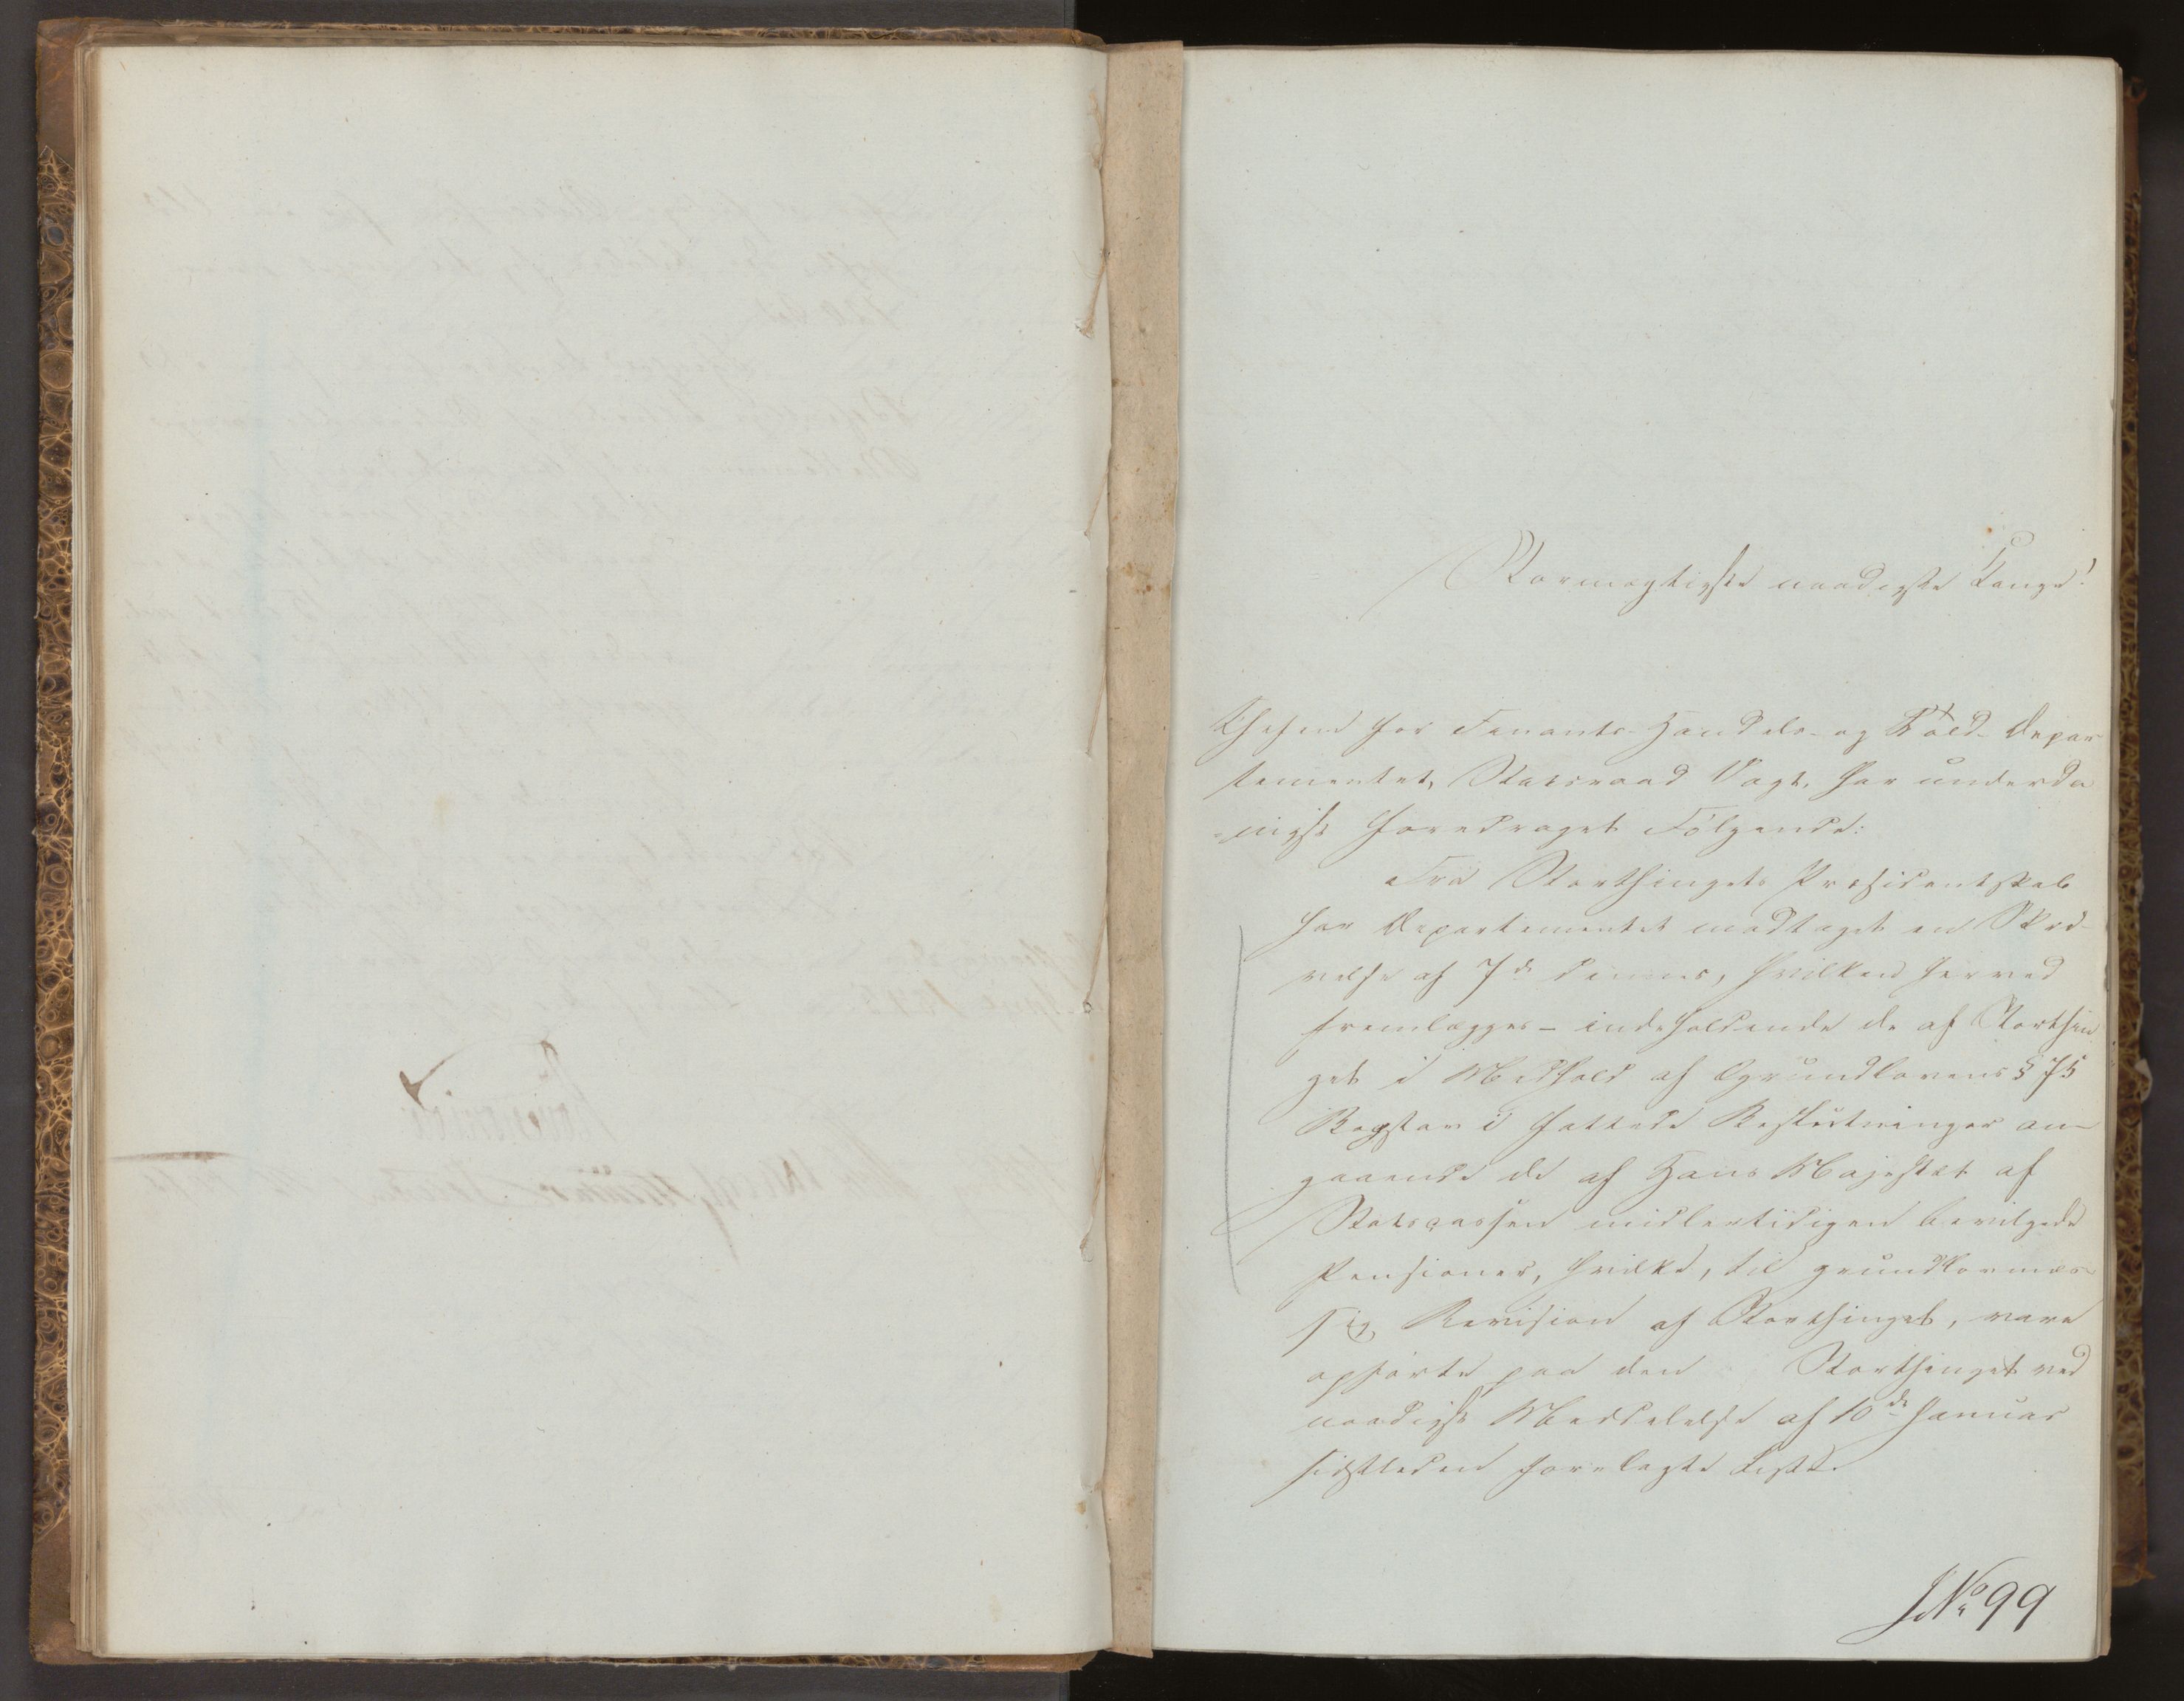 Stormægtigste naadigste Konge!
Chefen for Finants- Handels- og Told- Depar
tementet, Statsraad Vogt, har underda
nigst foredraget Følgende:
Fra Storthingets Præsidentskab
har Departementet modtaget en Skri-
velse af 7de dennes, hvilken herved
fremlægges - indeholdende de af Storthin
get i Medhold af Grundlovens § 75
Bogstav i fattede Beslutninger an-
gaaende de af Hans Majestæt af
Statscassen midlertidigen bevilgede
Pensioner, hvilke, til grundlovmæs-
sig Revision af Storthinget, vare
opførte paa den Storthinget ved
naadigst Meddelelse af 10de Januar
sidstleden forelagte Liste.
JNo 99